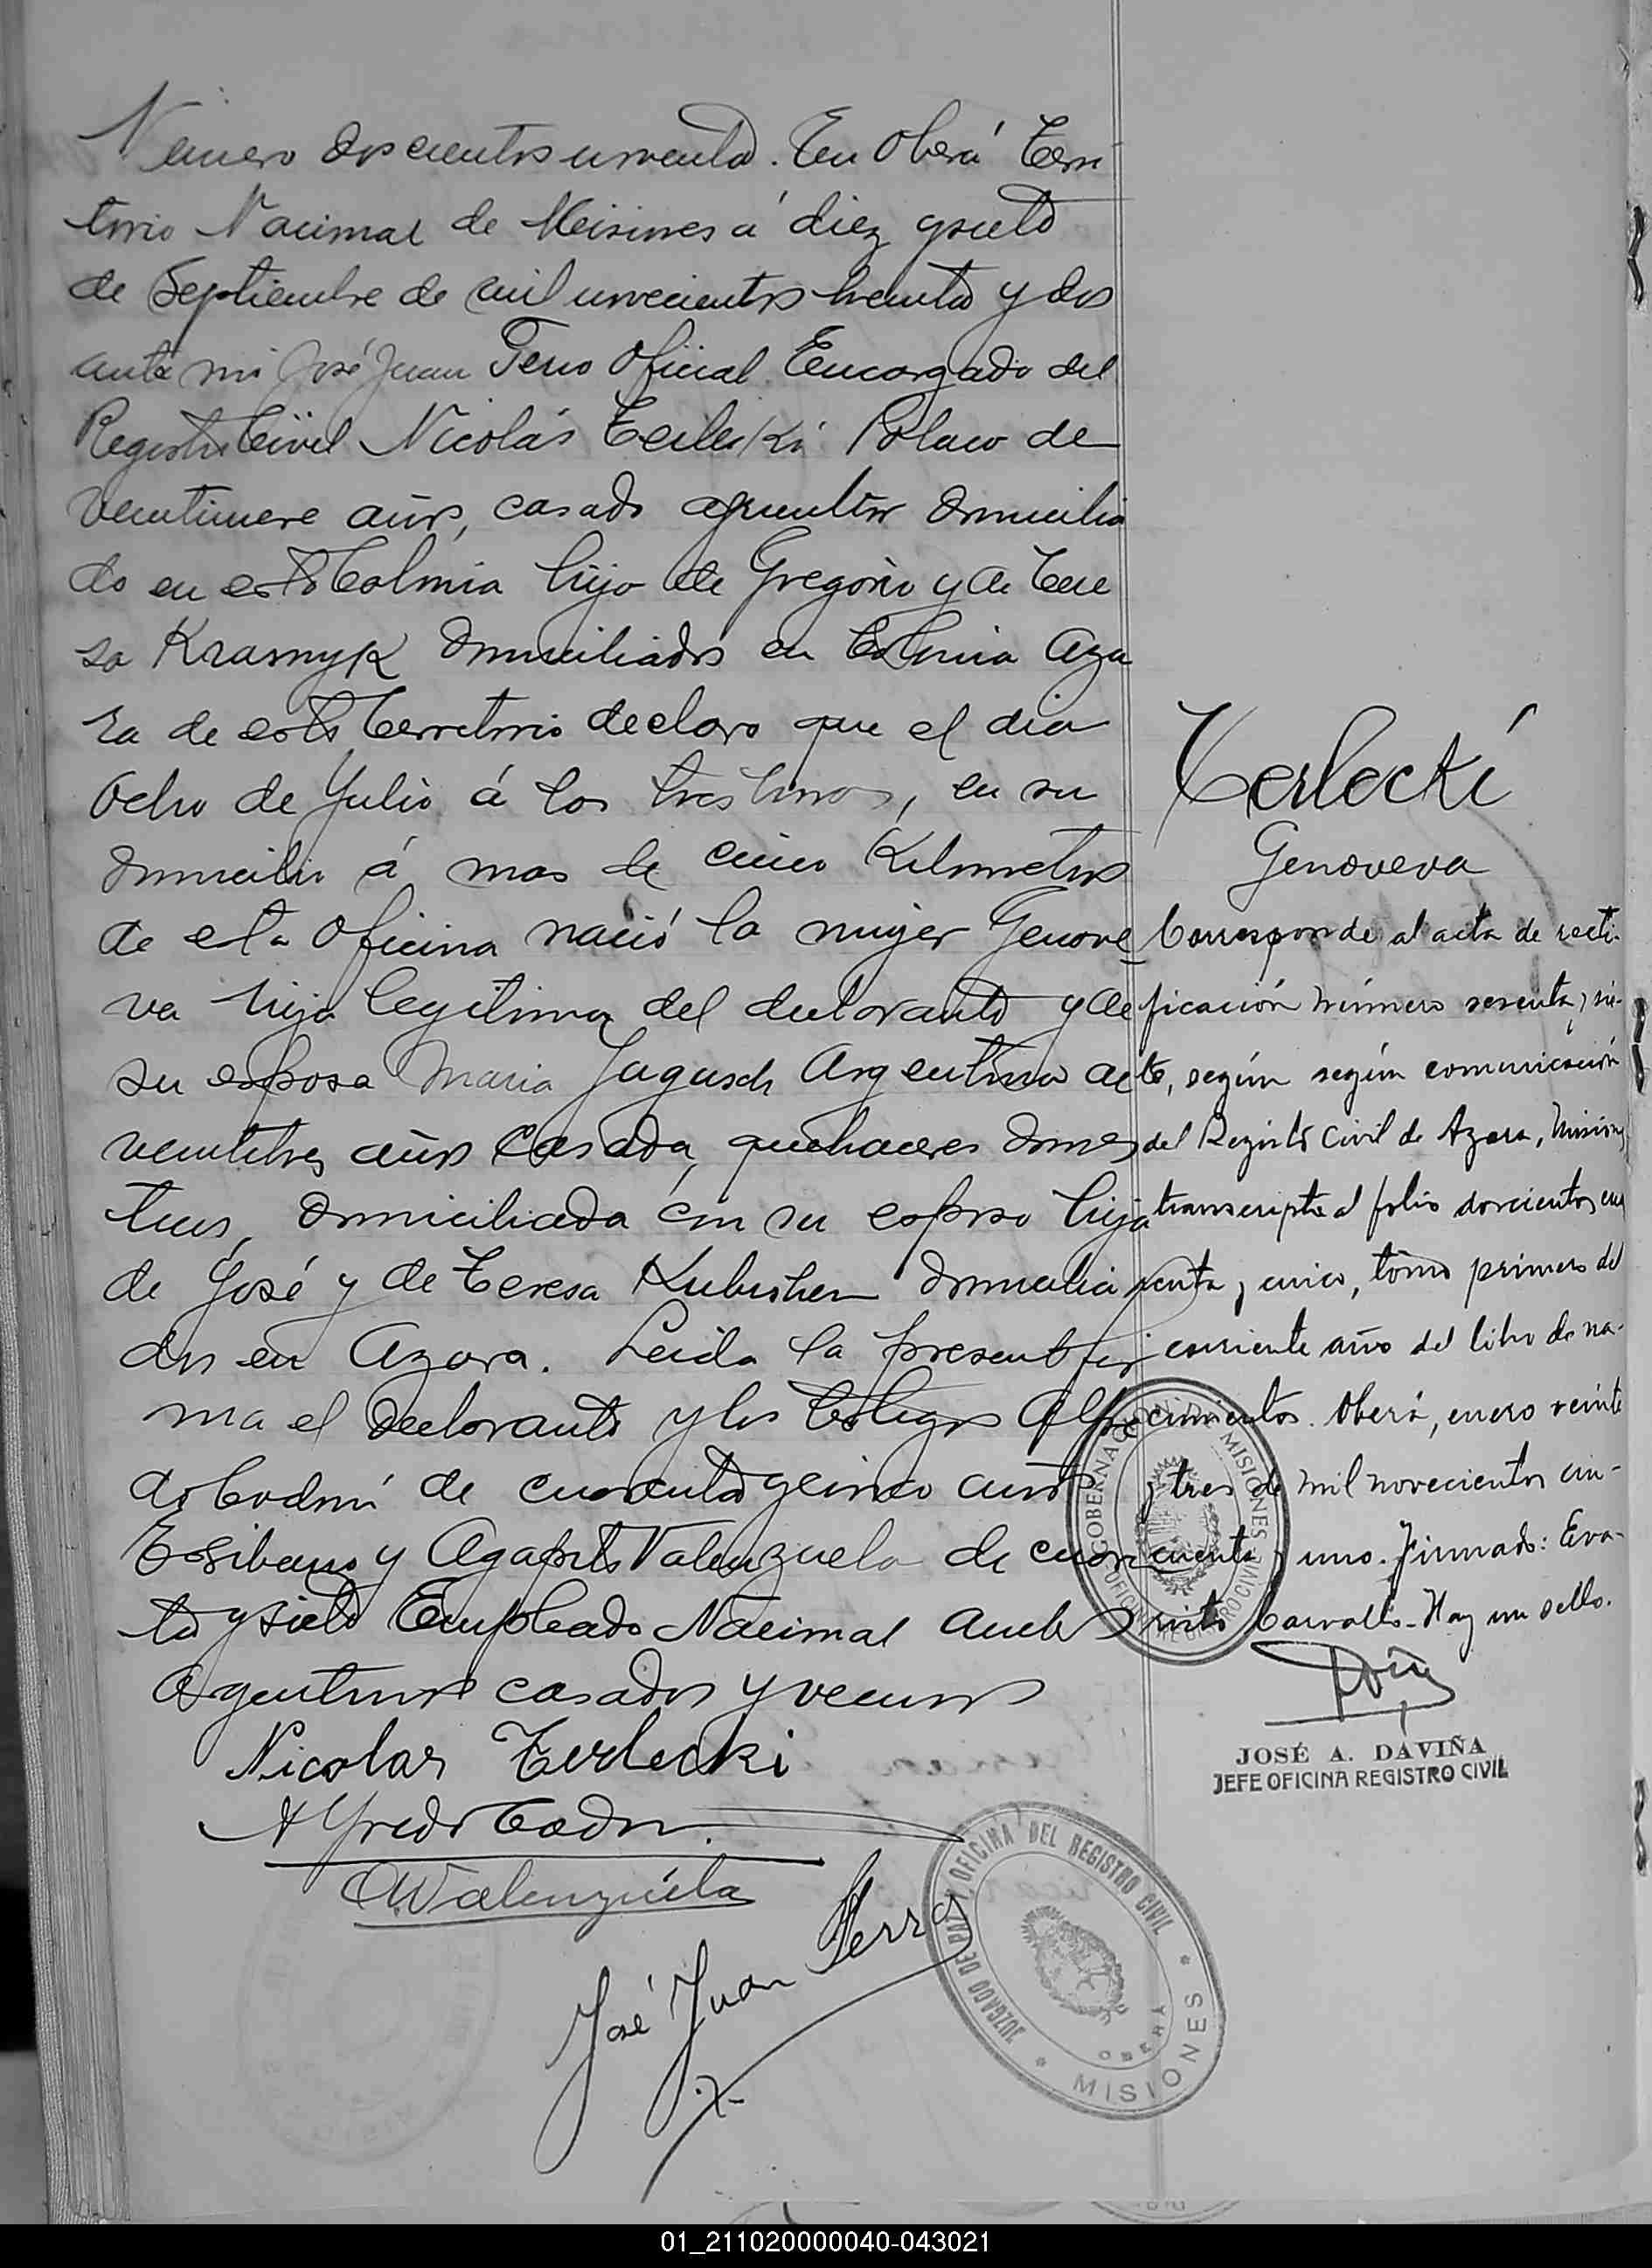 Número doscientos noventa. En Oberá Terri
torio Nacional de Misiones á diez y siete
de Septiembre de mil novecientos treinta y dos
ante mi José Juan Ferro Oficial Encargado del
Registro Civil Nicolás Terlecki Polaco de
veintinueve años, casado agricultor domicilia
do en esta Colonia hijo de Gregorio y de Tere
sa Krasnyk domiciliados en Colonia Aza
ra de este Territorio declaro que el dia
Ocho de Julio á las tres horas, en su
domicilio á mas de cinco Kilometros
de esta Oficina nació la mujer Genove
va hija legitima del declarante y de
su esposa Maria Jagusch Argentina de
veintitres años casada, quehaceres domes
ticos, domiciliada con su esposo hija
de José y de Teresa Kubishen domicilia
dos en Azara. Leida la presente fir
ma el declarante y los testigos Alfre
do Codoni de cuarenta y cinco años
Escribano y Agapito Valenzuela de cuaren
ta y siete Empleado Nacional ambos
Argentinos casados y vecinos
Nicolas Terlecki
Alfredo Codoni
A Valenzuela
José Juan Ferro
JUZGADO DE PAZ Y OFICINA DEL REGISTRO CIVIL
OBERA
* MISIONES *
Terlecki
Genoveva
Corresponde al acta de recti-
ficación número sesenta y sie-
te, según según comunicación
del Registro Civil de Azara, Misiones
transcripta al folio doscientos cua
renta y cinco, tomo primero del
corriente año del libro de na-
cimientos. Oberá, enero veinte
y tres de mil novecientos cin-
cuenta y uno. Firmado: Eva-
risto Carvallo - Hay un sello.
GOBERNACION DE MISIONES
OFICINA DE REGISTRO CIVIL
JOSÉ A. DAVIÑA
JEFE OFICINA REGISTRO CIVIL
01_211020000040-043021